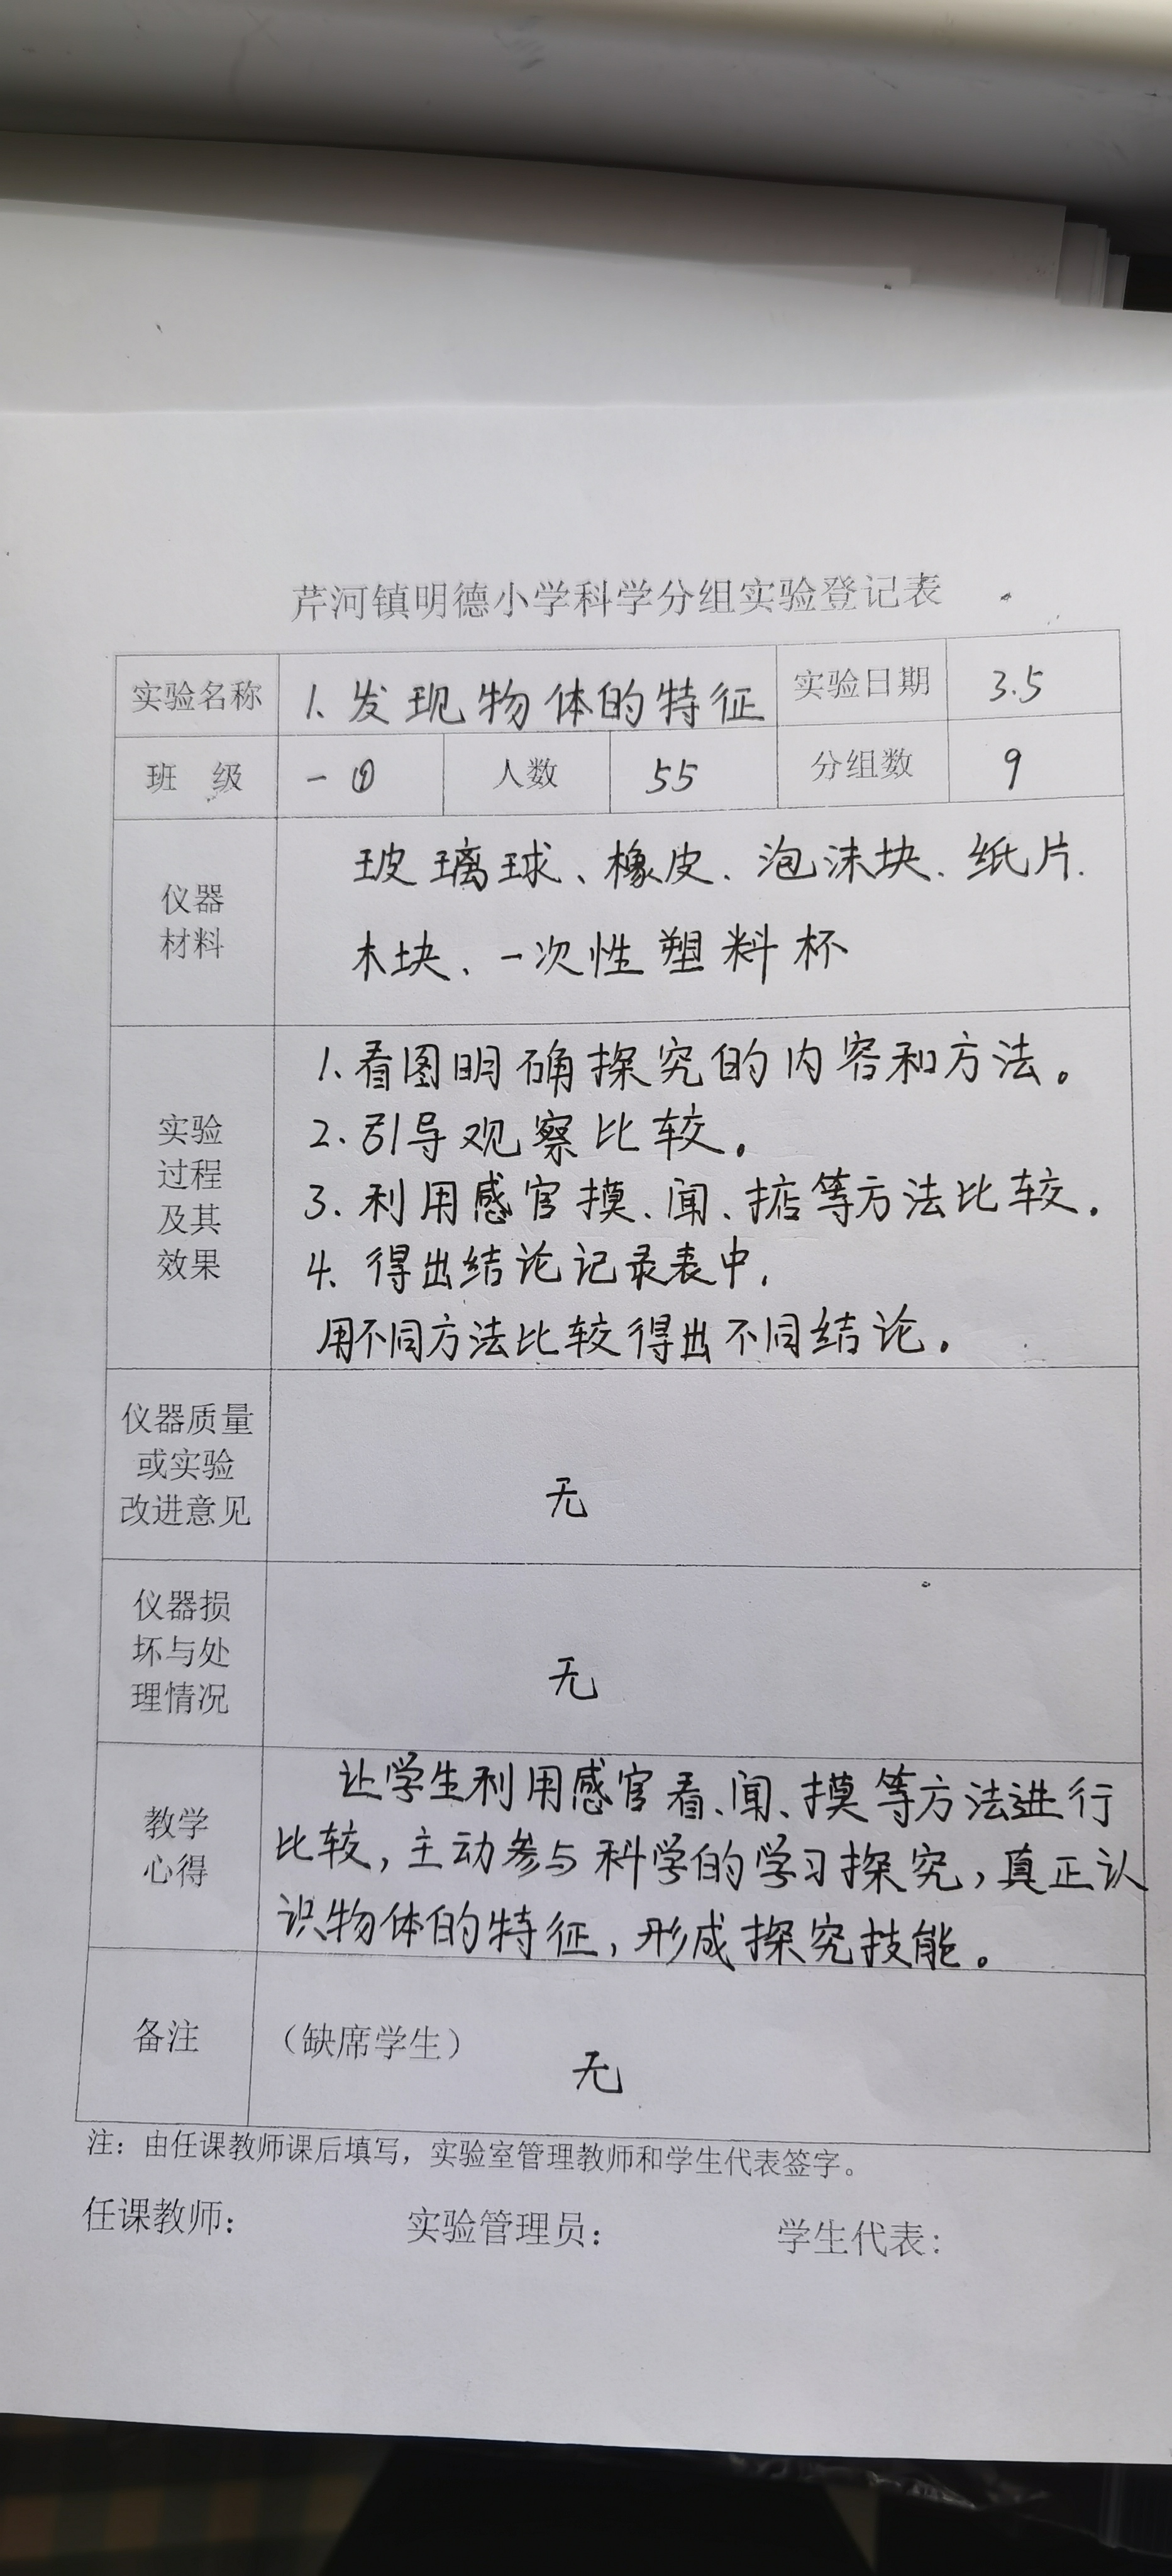 芹河镇明德小学科学分组实验登记表
实验名称 1、发现物体的特征 实验日期 3.5
班 级 一① 人数 55 分组数 9
仪器
材料
玻璃球、橡皮、泡沫块、纸片、
木块、一次性塑料杯
实验
过程
及其
效果
1、看图明确探究的内容和方法。
2、引导观察比较。
3、利用感官摸、闻、掂等方法比较。
4、得出结论记录表中,
用不同方法比较得出不同结论。
仪器质量
或实验
改进意见
无
仪器损
坏与处
理情况
无
教学
心得
让学生利用感官看、闻、摸等方法进行
比较,主动参与科学的学习探究,真正认
识物体的特征,形成探究技能。
备注
(缺席学生)
无
注:由任课教师课后填写,实验室管理教师和学生代表签字。
任课教师: 实验管理员: 学生代表: